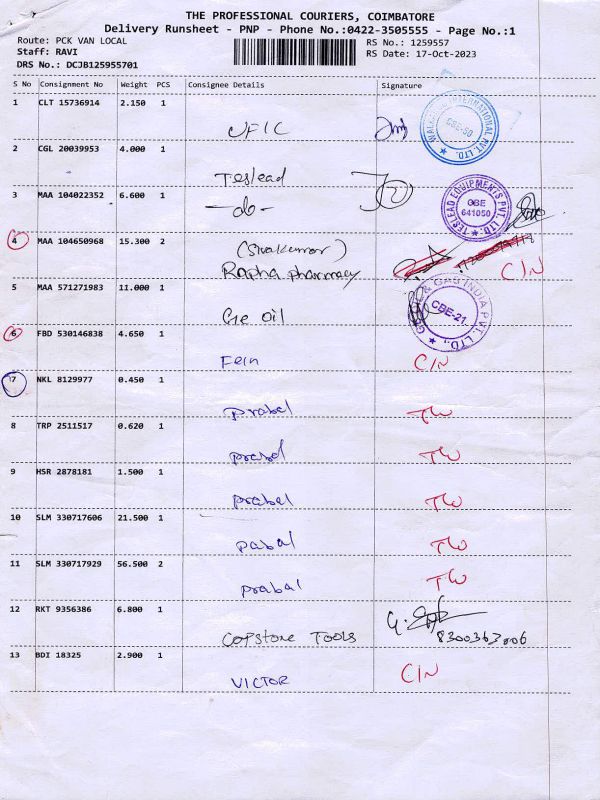 THE PROFESSIONAL COURIERS, COIMBATORE
Delivery Runsheet - PNP - Phone No.:0422-3505555 - Page No.:1
Route: PCK VAN LOCAL
RS No.: 1259557
Staff: RAVI
RS Date: 17-Oct-2023
DRS No.: DCJB125955701
S No Consignment No Weight PCS Consignee Details Signature
1 CLT 15736914 2.150 1
UFIC
WALKAROO INTERNATIONAL PVT. LTD. CBE-50
2 CGL 20039953 4.000 1
Teslead
3 MAA 104022352 6.600 1
-do-
TESLEAD EQUIPMENTS PVT. LTD. CBE 641050
4 MAA 104650968 15.300 2
(Sivakumar)
Rapha pharmacy C/N
5 MAA 571271983 11.000 1
Ge oil
& GAS INDIA PVT. LTD., CBE-21.
6 FBD 530146838 4.650 1
Fein C/N
7 NKL 8129977 0.450 1
prabal TW
8 TRP 2511517 0.620 1
prabal TW
9 HSR 2878181 1.500 1
prabal TW
10 SLM 330717606 21.500 1
pabal TW
11 SLM 330717929 56.500 2
prabal TW
12 RKT 9356386 6.800 1
COPSTONE TOOLS 8300363006
13 BDI 18325 2.900 1
VICTOR C/N